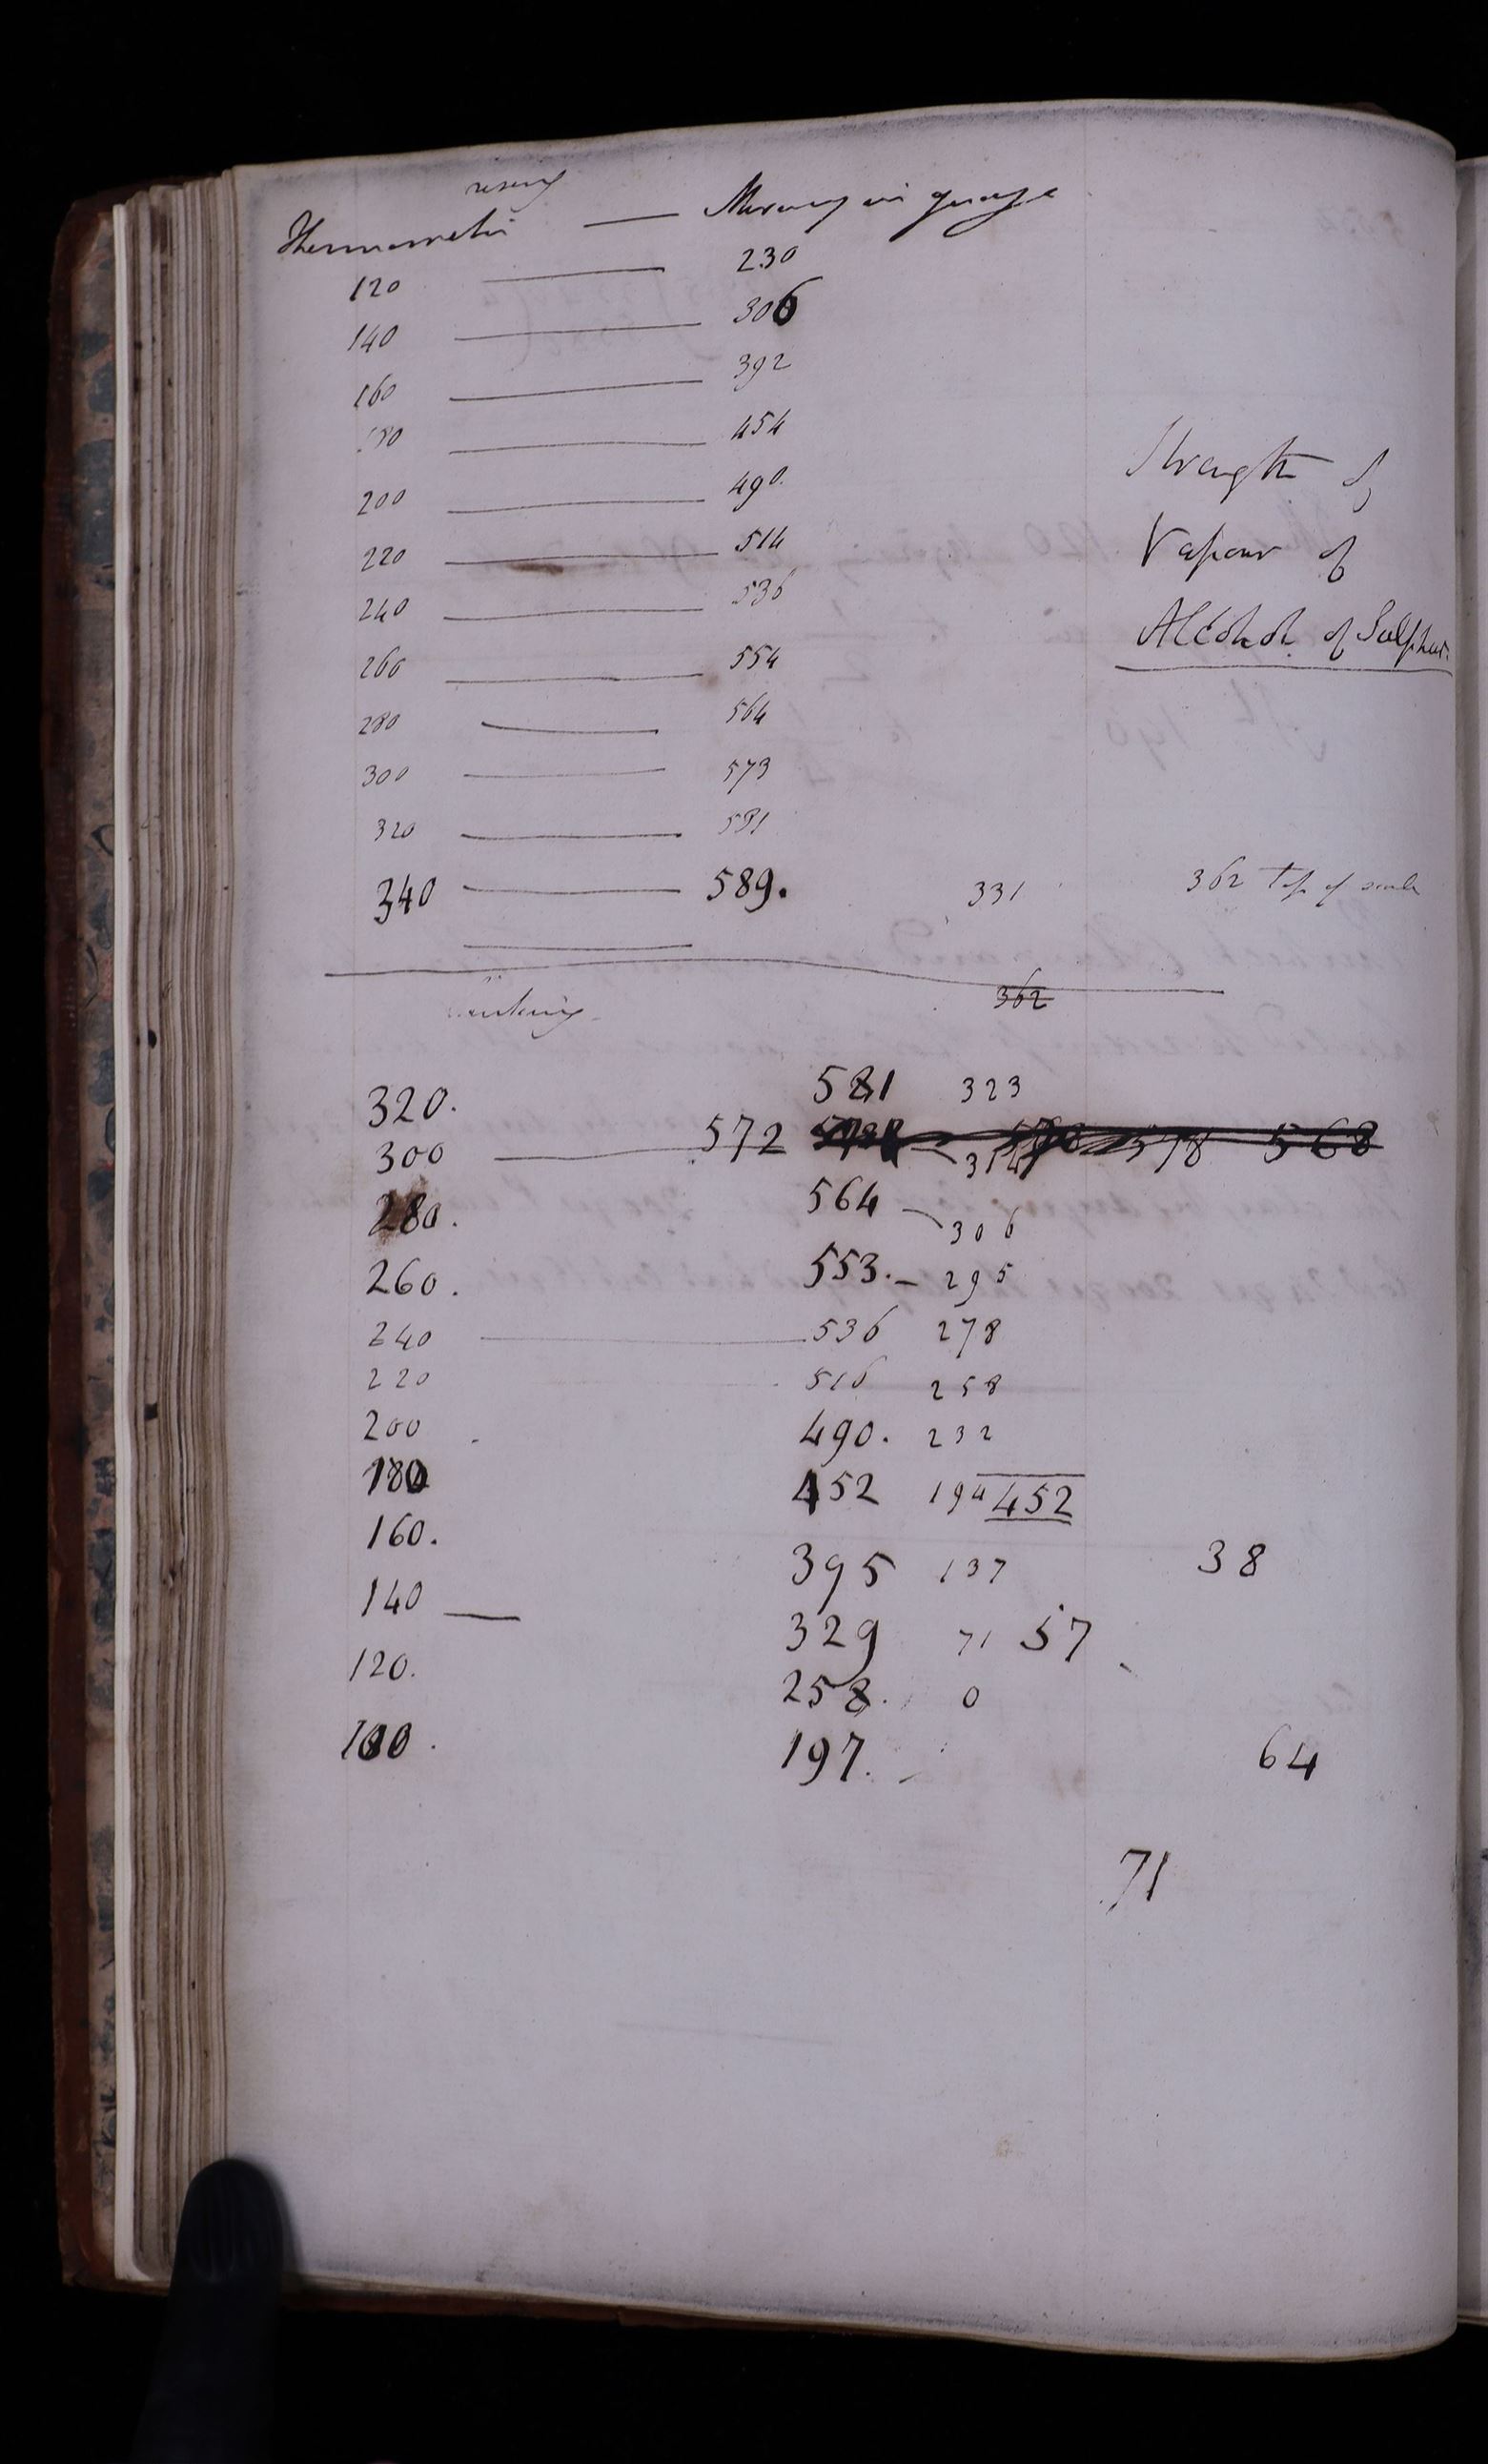 rising
Thermometer — Mercury in guage
120 — 230
140 — 306
160 — 392
180 — 454
200 — 490.
220 — 514
240 — 536
260 — 554
280 — 564
300 — 573
320 — 581
340 — 589. 331 362 top of scale
Strength of
Vapour of
Alcohol. of Sulphur.
362
sinking
320. 581 323
300 — 572 314 578 568
280. 564 — 306
260. 553. — 295
240 — 536 278
220 516 258
200 490. 232
180 452 194 452
160. 395 137 38
140 — 329 71 57
120. 258. 0
100. 197. 64
71